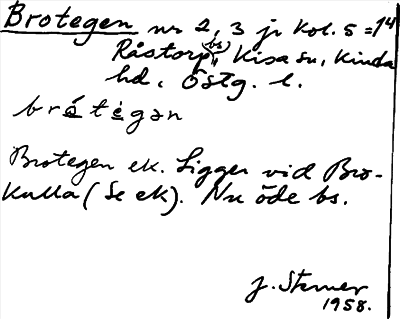 Brotegen nr 2, 3 jr kol. 5 = 14
Råstorp, (bs) Kisa sn, Kinda
hd, Östg. l.
brótègən
Brotegen ek. Ligger vid Bro-
kulla (se ek). Nu öde bs.
J. Sterner
1958.